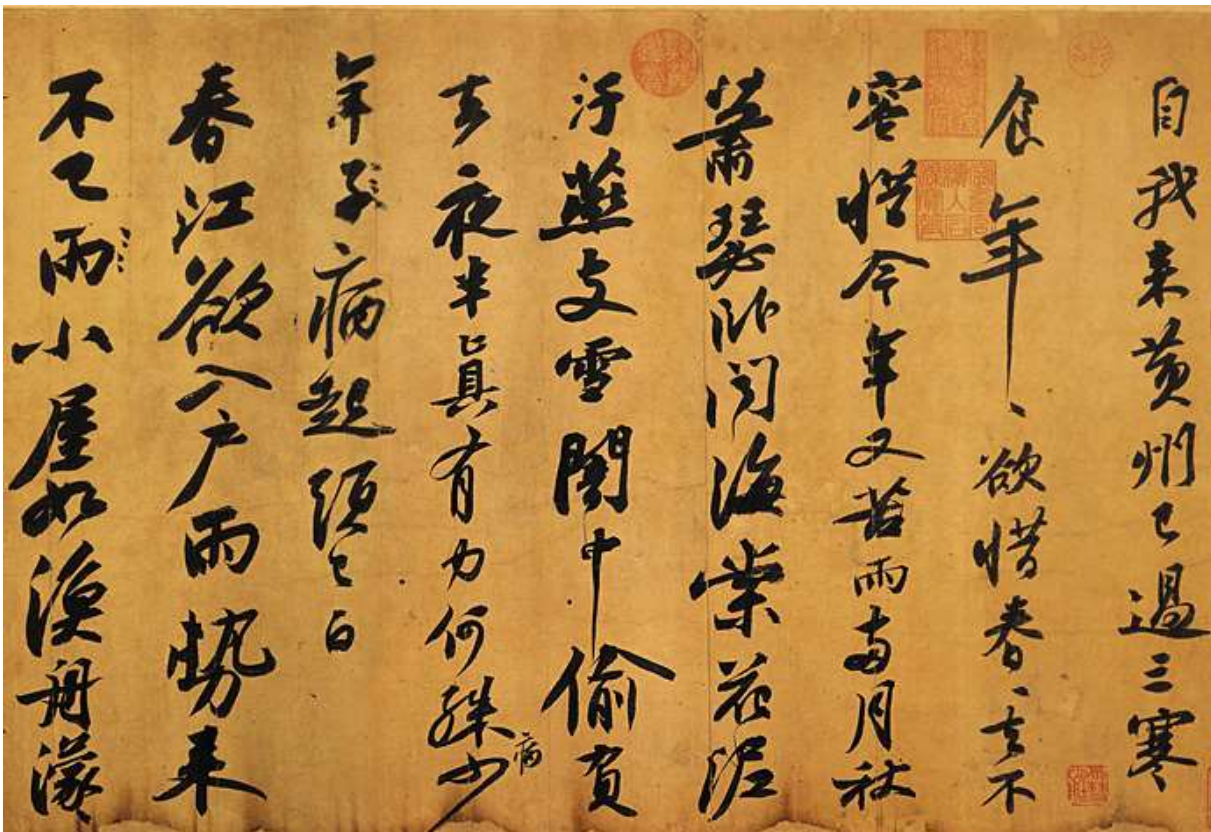 自我来黄州已過三寒
食年、欲惜春、去不
容惜今年又苦雨两月秋
蕭瑟卧聞海棠花泥
汙燕支雪闇中偷負
去夜半真有力何殊少
病
年子病起頭已白
春江欲入户雨勢来
不已雨小屋如漁舟濛